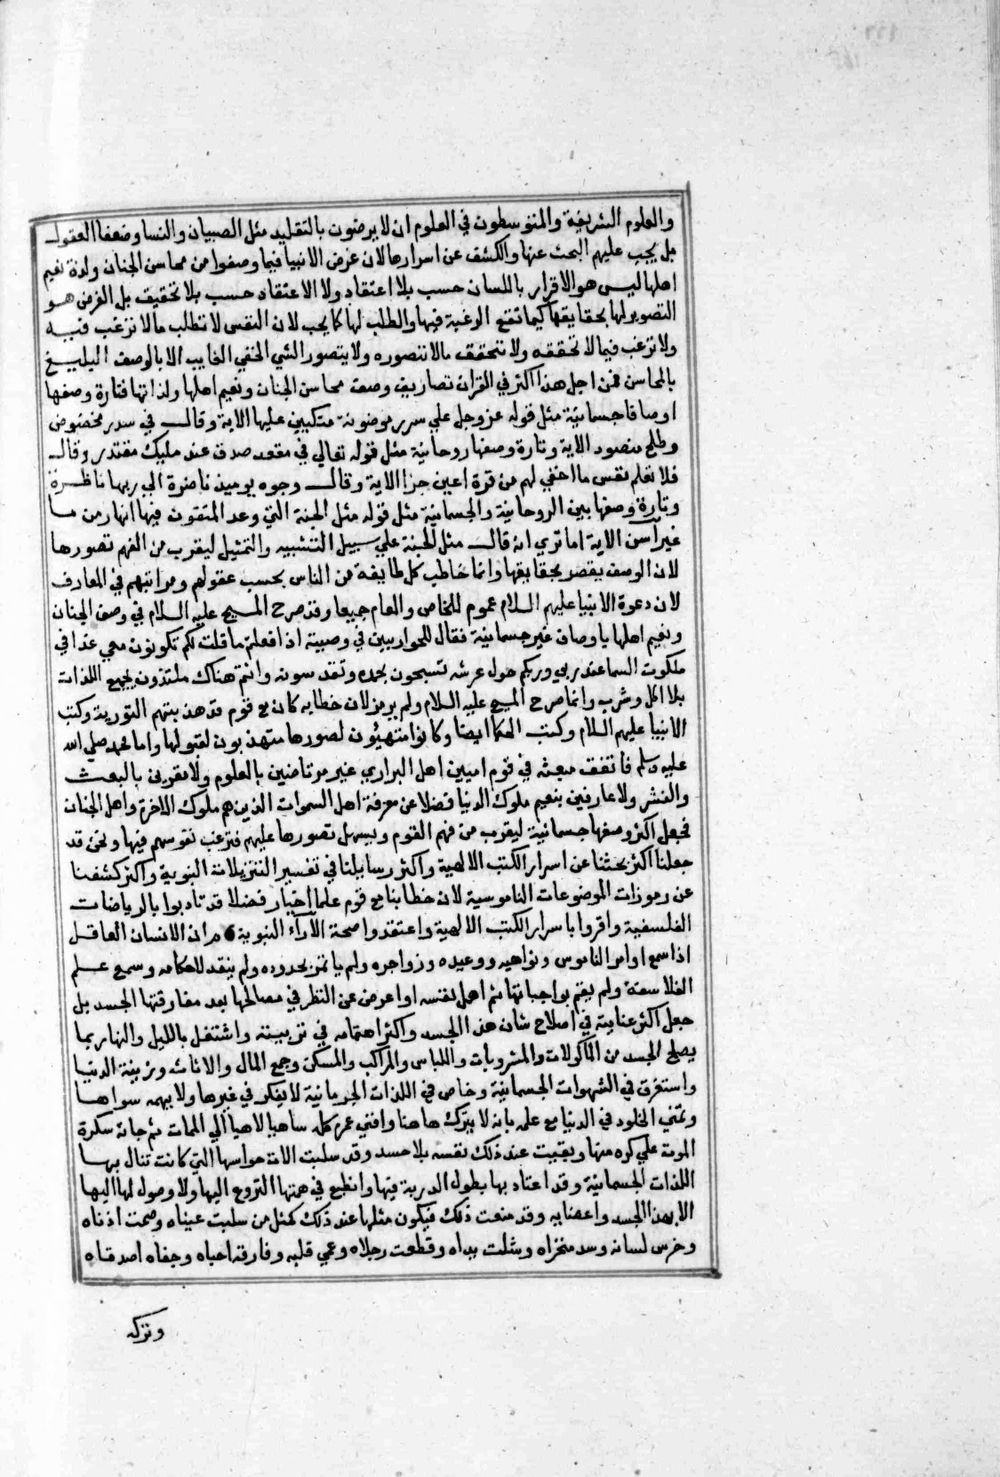 والعلوم الشريفة والمتوسطون في العلوم ان لا يرضون بالتقليد مثل الصبيان والنسا وضعفا العقول
بل يجب عليهم البحث عنها والكشف عن اسرارها لان غرض الانبيا فيما وصفوا من محاسن الجنان ولذة نعيم
اهلها ليس هو الاقرار باللسان حسب بلا اعتقاد ولا الاعتقاد حسب بلا تحقيق بل الغرض هو
التصوير لها بحقايقها كيما تقع الرغبة فيها والطلب لها كما يجب لان النفس لا تطلب ما لا ترغب فيه
ولا ترغب فيما لا تحققه ولا تتحقق ما لا تتصوره ولا يتصور الشي الخفي الغايب الا بالوصف البليغ
بالمحاسن فمن اجل هذا اكثر في القران تصاريف وصف محاسن الجنان ونعيم اهلها ولذاتها فتارة وصفها
اوصافا جسمانية مثل قوله عز وجل علي سرر موضونة متكيين عليها الاية وقال في سدر مخضوض
وطلح منضود الاية وتارة وصفها روحانية مثل قوله تعالي في مقعد صدق عند مليك مقتدر وقال
فلا تعلم نفس ما اخفي لهم من قرة اعين جزا الاية وقال وجوه يوميذ ناضرة الي ربها ناظرة
وتارة وصفها بين الروحانية والجسمانية مثل قوله مثل الجنة التي وعد المتقون فيها انهار من ما
غير آسن الاية اما تري انه قال مثل الجنة علي سبيل التشبيه والتمثيل ليقرب من الفهم تصورها
لان الوصف يقصر بحقايقها وانما خاطب كل طايفة من الناس بحسب عقولهم ومراتبهم في المعارف
لان دعوة الانبيا عليهم السلام عموم للخاص والعام جميعا وقد صرح المسيح عليه السلام في وصف الجنان
ونعيم اهلها باوصاف غير جسمانية فقال للحواريين في وصيته اذا فعلتم ما قلت لكم تكونون معي غدا في
ملكوت السما عند ربي وربكم حول عرشه تسبحون بحمده وتقدسونه وانتم هناك ملتذون بجميع اللذات
بلا اكل وشرب وانما صرح المسيح عليه السلام ولم يرمز لان خطابه كان مع قوم قد هذبتهم التورية وكتب
الانبيا عليهم السلام وكتب الحكما ايضا وكانوا متهيئون لصورها متهذبون لقبولها واما محمد صلي الله
عليه وسلم فاتفق مبعثه في قوم اميين اهل البراري غير مرتاضين بالعلوم ولا مقرين بالبعث
والنشر ولا عارفين بنعيم ملوك الدنيا فضلا عن معرفة اهل السموات الذين هم ملوك الاخرة واهل الجنان
فجعل اكثر وصفها جسمانية ليقرب من فهم القوم ويسهل تصورها عليهم فترغب نفوسهم فيها ونحن قد
جعلنا اكثر بحثنا عن اسرار الكتب الالهية واكثر رسايلنا في تفسير التنزيلات النبوية واكثر كشفنا
عن رموزات الموضوعات الناموسية لان خطابنا مع قوم علما اخيار فضلا قد تادبوا بالرياضات
الفلسفية واقروا باسرار الكتب الالهية واعتقدوا صحة الآراء النبوية ان الانسان العاقل
اذا سمع اوامر الناموس ونواهيه ووعيده وزواجره ولم ياتمر بحدوده ولم ينقد لاحكامه وسمع علم
الفلاسفة ولم يقم بواجباتها ثم اهمل نفسه او اعرض عن النظر في مصالحها بعد مفارقتها الجسد بل
جعل اكثر عنايته في اصلاح شان هذا الجسد واكثر اهتمامه في تربيته واشتغل بالليل والنهار بما
يصلح الجسد من المأكولات والمشروبات واللباس والمراكب والمسكن وجمع المال والاثاث وزينة الدنيا
واستغرق في الشهوات الجسمانية وغاص في اللذات الجرمانية لا يفكر في غيرها ولا يهمه سواها
وتمني الخلود في الدنيا مع علمه بانه لا يترك هاهنا وافني عمره كله ساهيا لاهيا الي الممات ثم جاته سكرة
الموت علي كره منها وبقيت عند ذلك نفسه بلا جسد وقد سلبت الات حواسها التي كانت تنال بها
اللذات الجسمانية وقد اعتاد بها بطول الدربة فيها وانطبع في همتها النزوع اليها ولا وصول لها اليها
الا بهذا الجسد واعضايه وقد منعت ذلك فيكون مثلها عند ذلك كمثل من سلبت عيناه وصمت اذناه
وخرس لسانه وسد منخراه وشلت يداه وقطعت رجلاه وعمي قلبه وفارقه احباه وجفاه اصدقاه
وتركه